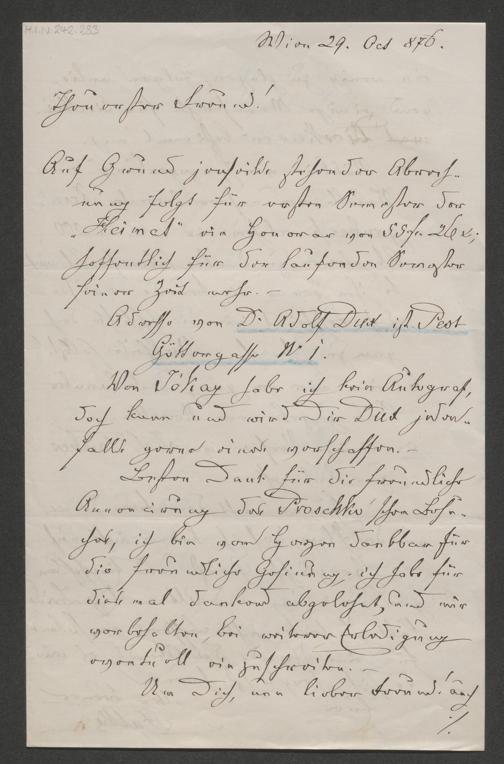 H.I.N. 242.283
Wien 29. Oct 876.
Theuerster Freund!
Auf Grund jenseits stehender Abrech-
nung folgt für ersten Semester der
„Heimat" ein Honorar von 55 fl 26 x;
hoffentlich für den laufenden Semester
seiner Zeit mehr. –
Adresse von Dr Adolf Dux ist Pest
Göttergasse No 1.
Von Jókay habe ich kein Autograf,
doch kann und wird Dir Dux jeden-
falls gerne eines verschaffen. –
Besten Dank für die freundliche
Annoncirung des Proschko'schen
ich bin vom Herzen dankbar für
die freundliche Gesinnung; ich habe für
diesmal dankend abgelehnt, und mir
vorbehalten, bei weiterer Erledigung
eventuell einzuschreiten. –
Um Dich, mein lieber Freund! auch
./.